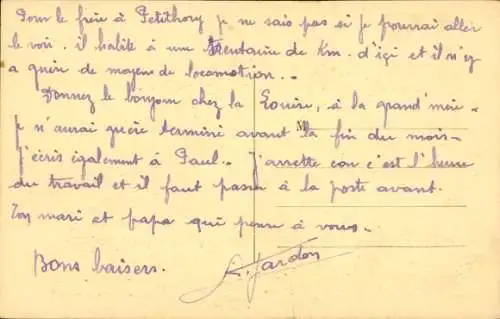 Pour le frère à Petithory je ne sais pas si je pourrai aller
le voir. il habite à une trentaine de Km. d'içi et il n'y
a guère de moyen de locomotion..
Donnez le bonjour chez la Louise, à la grand'mère -
je n'aurai guère terminé avant la fin du mois -
J'écris également à Paul.. J'arrette car c'est l'heure
du travail et il faut passer à la poste avant.
Ton mari et papa qui pense à vous -
Bons baisers.
Jardon